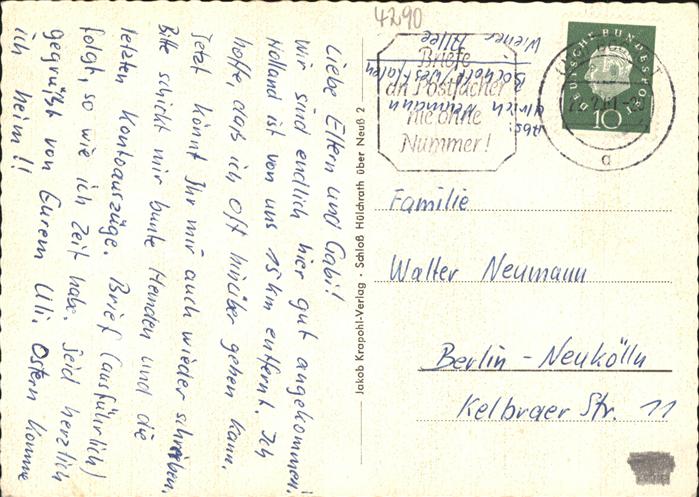 Liebe Eltern und Gabi!
Wir sind endlich hier gut angekommen!
Holland ist von uns 15 km entfernt. Ich
hoffe, daß ich oft hinüber gehen kann.
Jetzt könnt Ihr mir auch wieder schreiben.
Bitte schickt mir bunte Hemden und die
letzten Kontoauszüge. Brief (ausführlich)
folgt, so wie ich Zeit habe. Seid herzlich
gegrüßt von Eurem Uli. Ostern komme
ich heim!!
Jakob Krapohl-Verlag · Schloß Hülchrath über Neuß 2
4290
Abs:
Ulrich Neumann
Bocholt / Westfalen
Wiener Allee
Briefe
an Postfächer
nie ohne
Nummer!
DEUTSCHE BUNDESPOST
10
a
Familie
Walter Neumann
Berlin - Neukölln
Kelbraer Str. 11